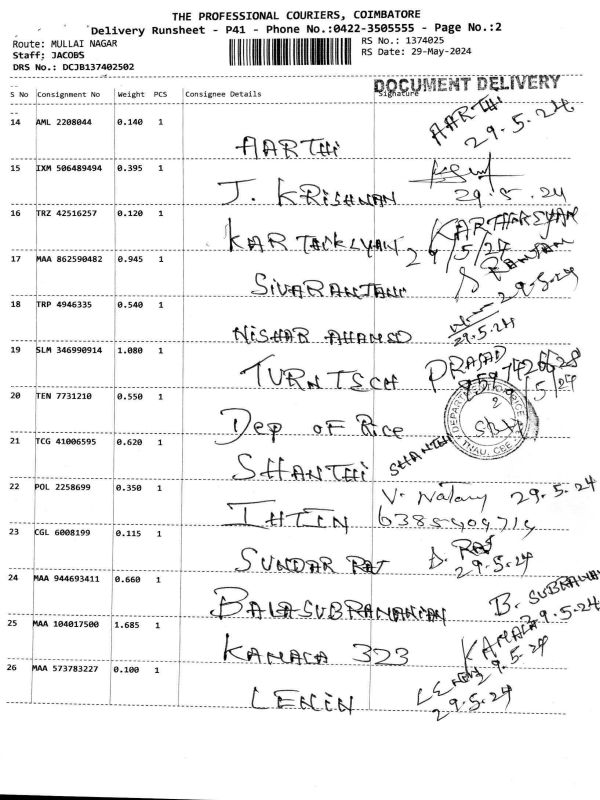 THE PROFESSIONAL COURIERS, COIMBATORE
Delivery Runsheet - P41 - Phone No.:0422-3505555 - Page No.:2
Route: MULLAI NAGAR
RS No.: 1374025
Staff; JACOBS
RS Date: 29-May-2024
DRS No.: DCJB137402502
DOCUMENT DELIVERY
S No Consignment No Weight PCS Consignee Details Signature
14 AML 2208044 0.140 1
AARTHI AARTHI
29.5.24
15 IXM 506489494 0.395 1
J. KRISHNAN 29.5.24
16 TRZ 42516257 0.120 1
29/5/24
17 MAA 862590482 0.945 1
SIVARANJANI S RANJANI
29-5-24
18 TRP 4946335 0.540 1
29.5.24
19 SLM 346990914 1.080 1
TURNTECH PRASAD
20 TEN 7731210 0.550 1
Dep OF Rice
21 TCG 41006595 0.620 1
SHANTHI SHANTHI
22 POL 2258699 0.350 1
29.5.24
23 CGL 6008199 0.115 1
SUNDAR RAJ D. RAJ
29.5.24
24 MAA 944693411 0.660 1
BALASUBRAMANIAN B. SUBRAMAN
29.5.24
25 MAA 104017500 1.685 1
KAMALA 323 KAMALA
29.5.24
26 MAA 573783227 0.100 1
LENIN LENIN
29.5.24